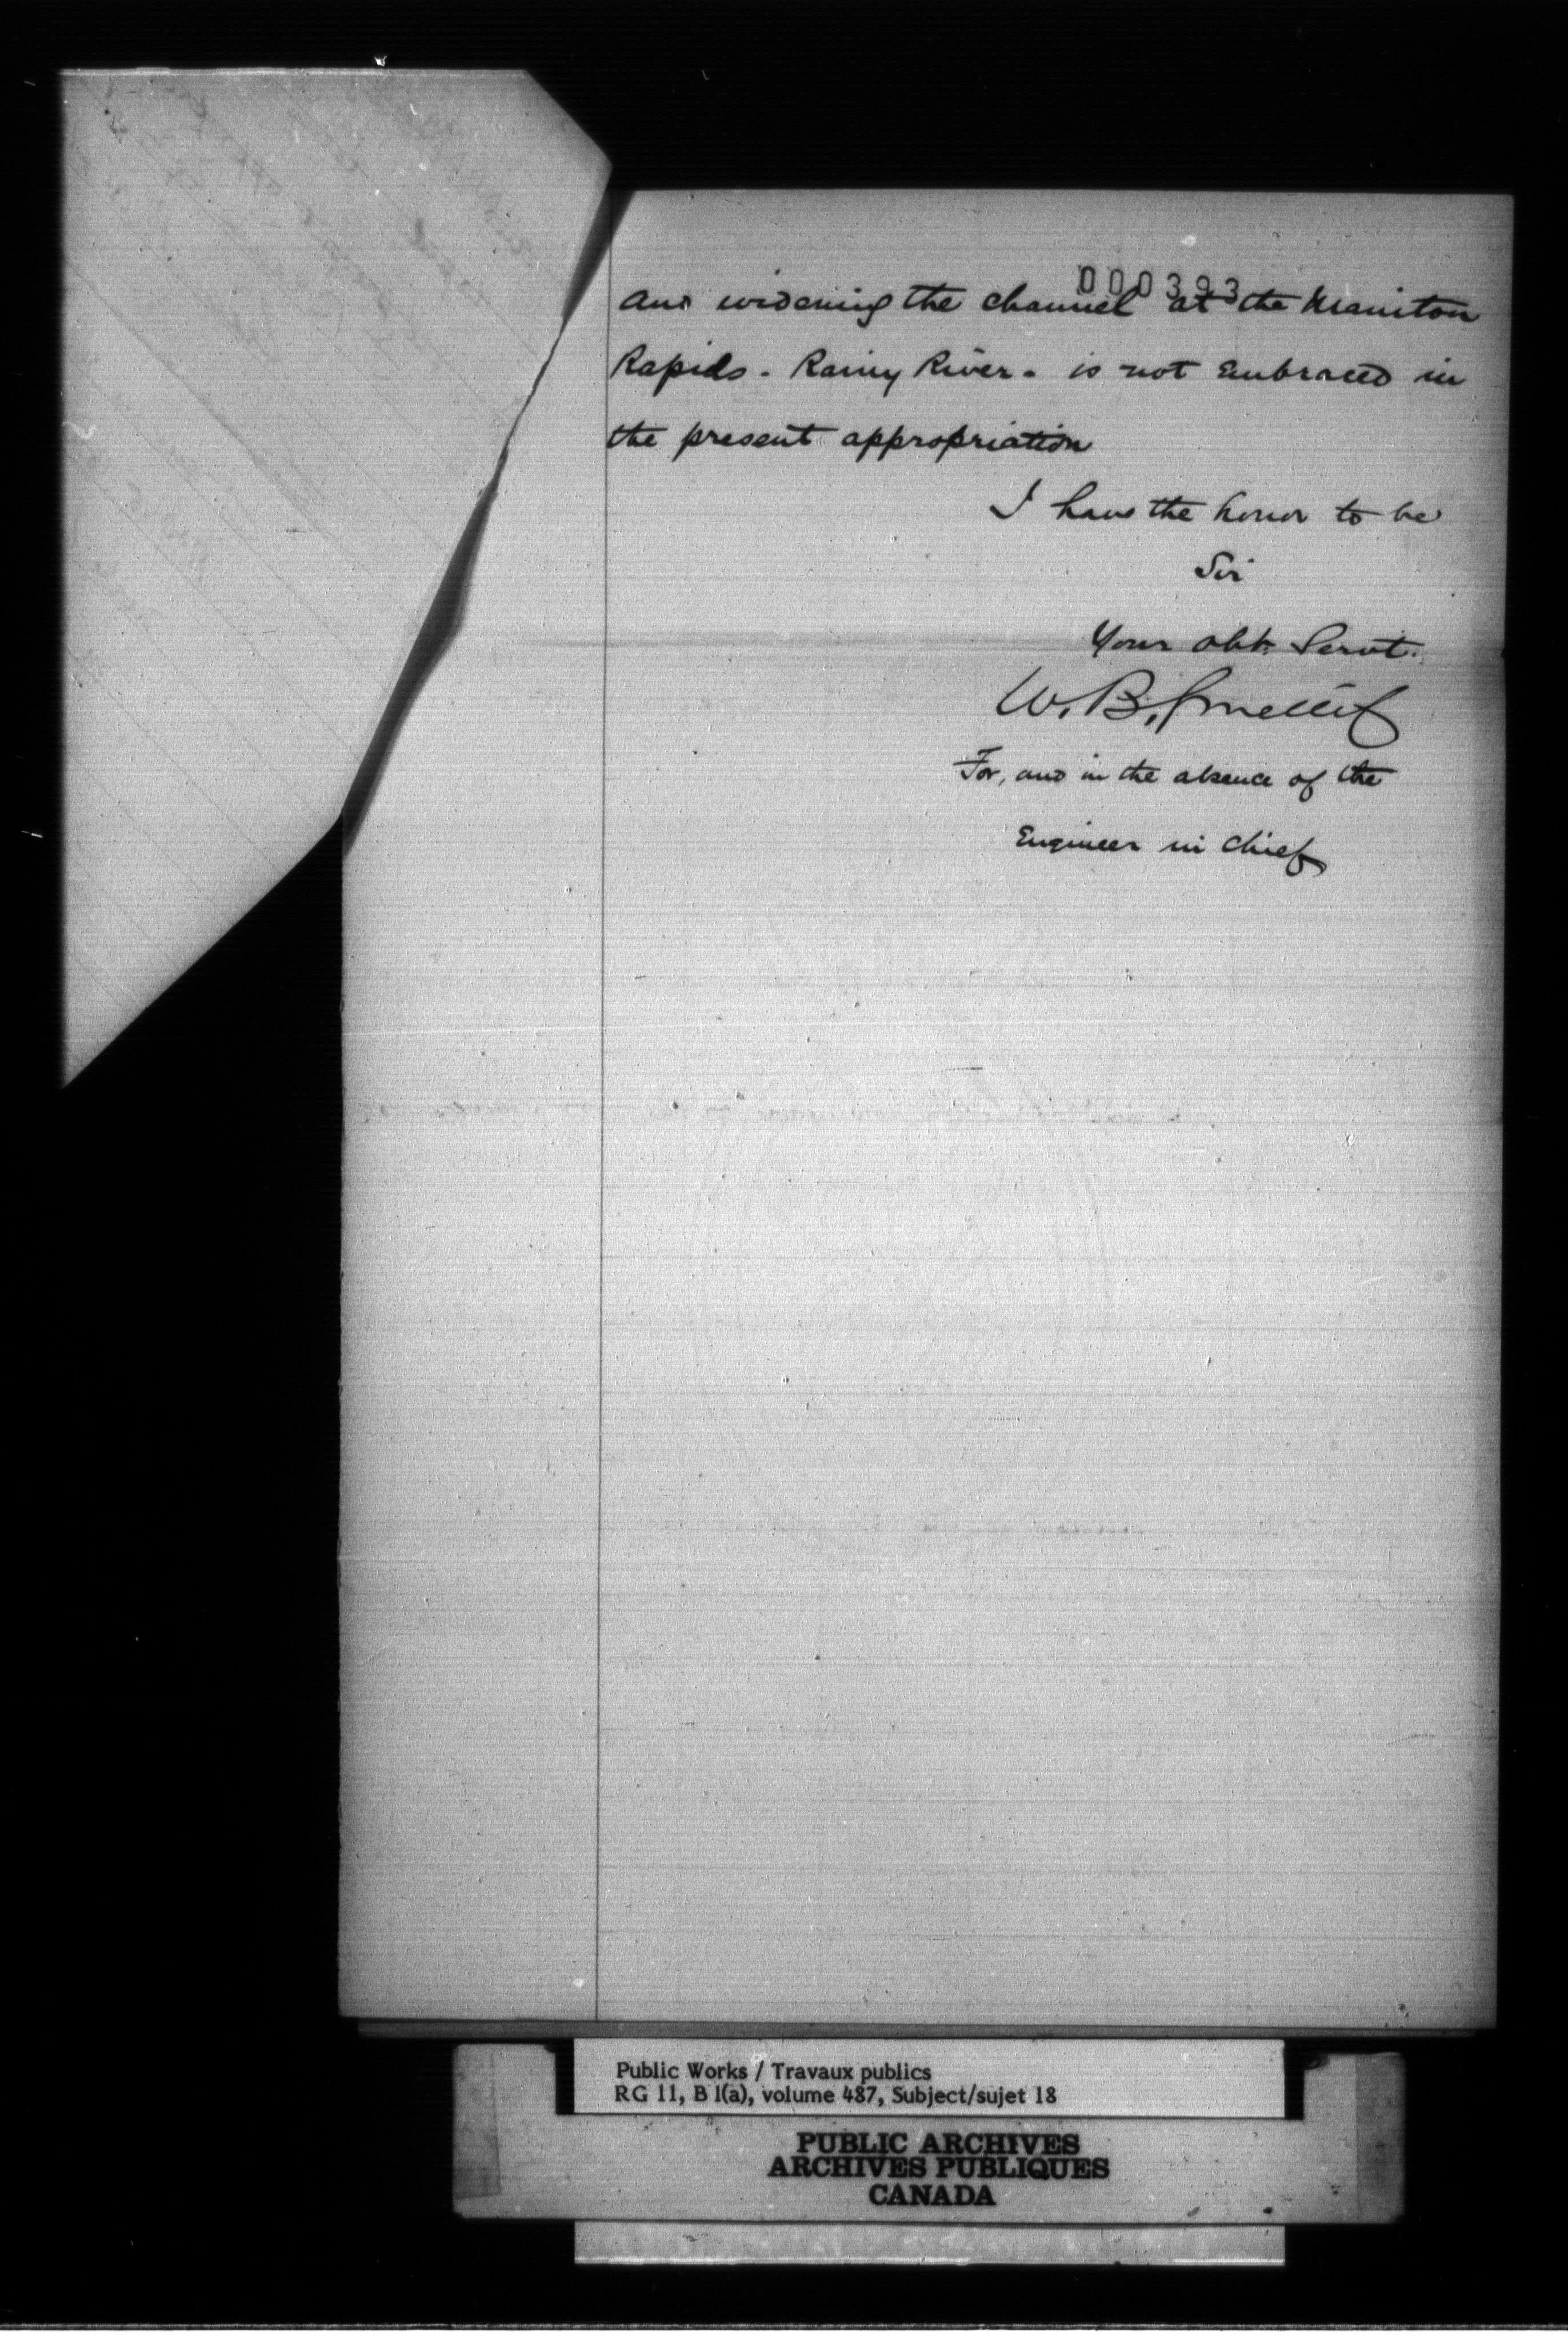 000393
and widening the channel at the Maniton
Rapids - Rainy River - is not Embraced in
the present appropriation
I have the honor to be
Sir
Your obt. Servt.
W. B. Smellie
For, and in the absence of the
Engineer in Chief
Public Works / Travaux publics
RG 11, B 1(a), volume 487, Subject/sujet 18
PUBLIC ARCHIVES
ARCHIVES PUBLIQUES
CANADA